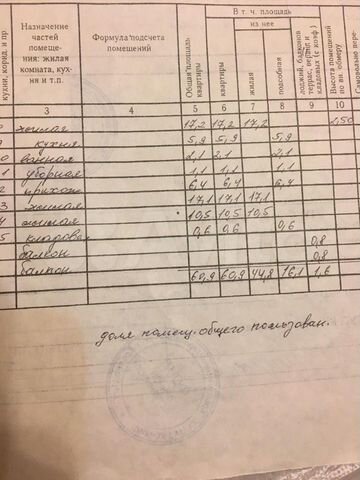 кухни, корид. и пр.
Назначение частей помещения: жилая комната, кухня и т.п.
Формула подсчета помещений
В т. ч. площадь
из нее
Общая площадь квартиры
квартиры
жилая
подсобная
лоджий, балконов террас, веранд и кладовых (с коэф.)
Высота помещений по вн. обмеру
Самовольно пере-
3 4 5 6 7 8 9 10
жилая 17,2 17,2 17,2 2,50
кухня 5,9 5,9 5,9
ванная 2,1 2,1 2,1
уборная 1,1 1,1 1,1
прихож 6,4 6,4 6,4
жилая 17,1 17,1 17,1
жилая 10,5 10,5 10,5
кладовая 0,6 0,6 0,6
балкон 0,8
балкон 0,8
60,9 60,9 44,8 16,1 1,6
доля помещ. общего пользован.